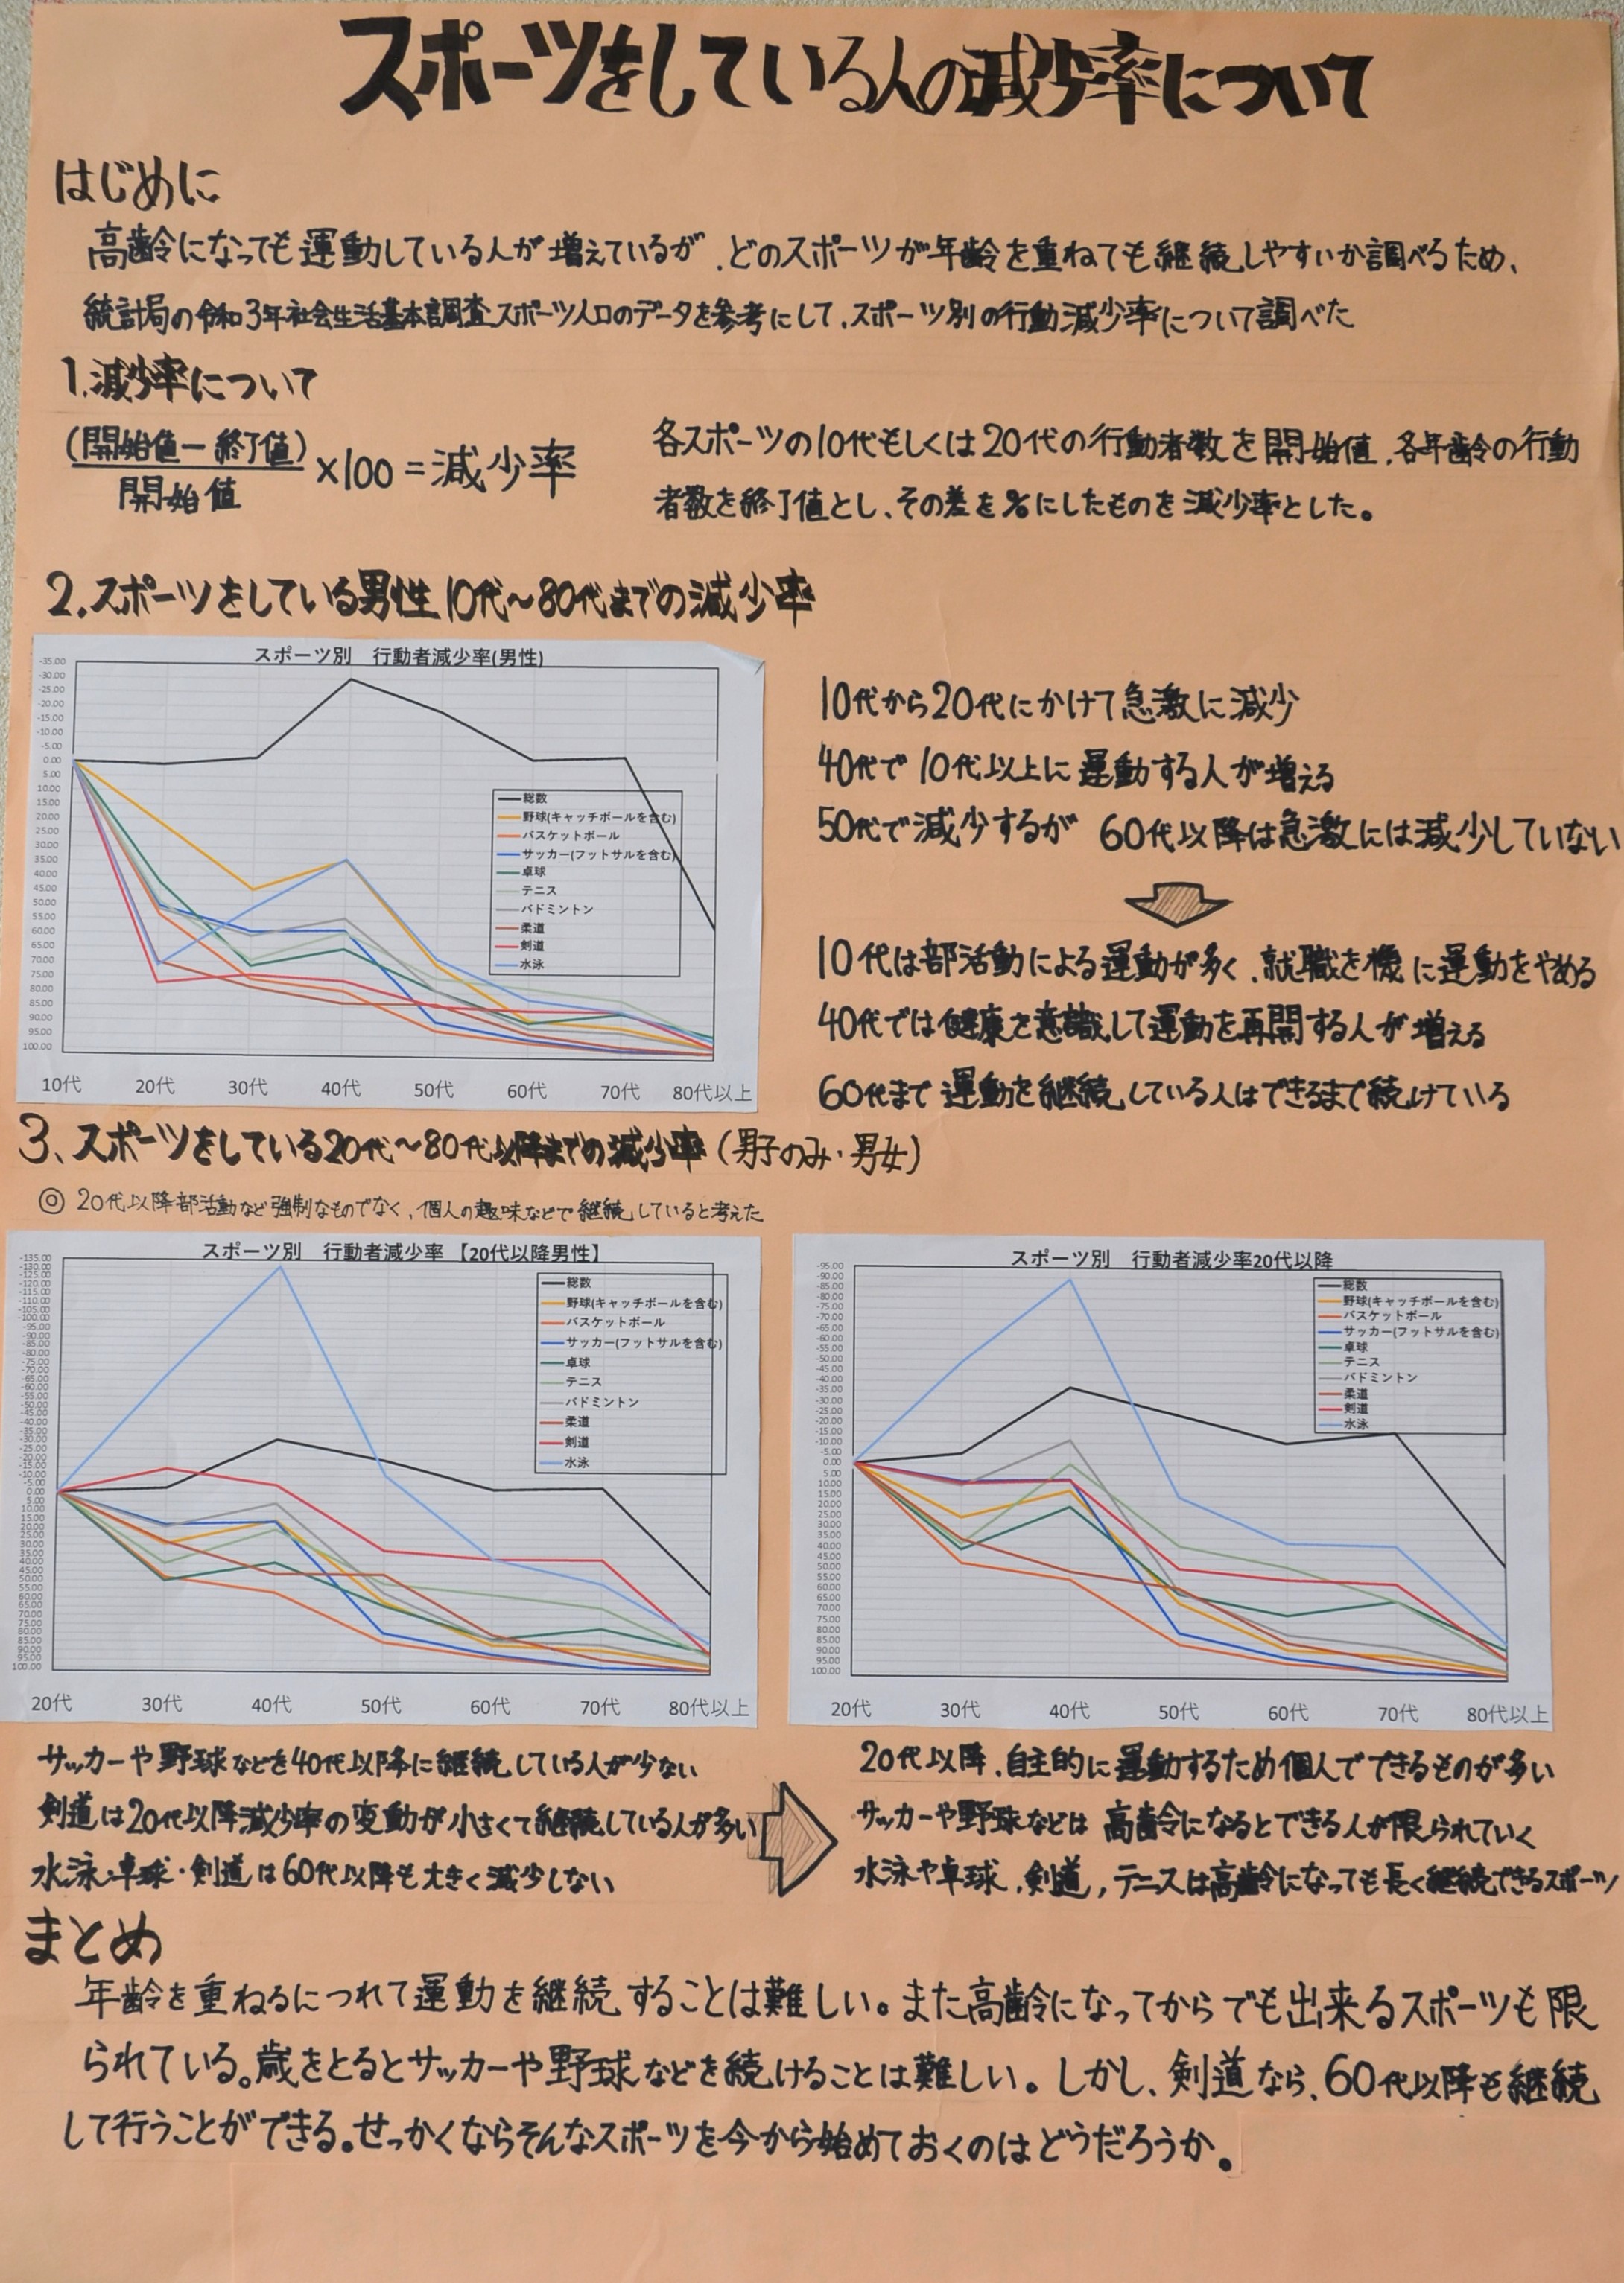 スポーツをしている人の減少率について
はじめに
高齢になっても運動している人が増えているが、どのスポーツが年齢を重ねても継続しやすいか調べるため、
統計局の令和3年社会生活基本調査スポーツ人口のデータを参考にして、スポーツ別の行動減少率について調べた
1.減少率について
(開始値－終了値)
開始値
×100＝減少率
各スポーツの10代もしくは20代の行動者数を開始値、各年齢の行動
者数を終了値とし、その差を%にしたものを減少率とした。
2.スポーツをしている男性10代〜80代までの減少率
スポーツ別　行動者減少率(男性)
-35.00
-30.00
-25.00
-20.00
-15.00
-10.00
-5.00
0.00
5.00
10.00
15.00
20.00
25.00
30.00
35.00
40.00
45.00
50.00
55.00
60.00
65.00
70.00
75.00
80.00
85.00
90.00
95.00
100.00
総数
野球(キャッチボールを含む)
バスケットボール
サッカー(フットサルを含む)
卓球
テニス
バドミントン
柔道
剣道
水泳
10代 20代 30代 40代 50代 60代 70代 80代以上
10代から20代にかけて急激に減少
40代で10代以上に運動する人が増える
50代で減少するが 60代以降は急激には減少していない
10代は部活動による運動が多く、就職を機に運動をやめる
40代では健康を意識して運動を再開する人が増える
60代まで運動を継続している人はできるまで続けている
3、スポーツをしている20代〜80代以降までの減少率(男子のみ・男女)
◎ 20代以降部活動など強制なものでなく、個人の趣味などで継続していると考えた
スポーツ別　行動者減少率 【20代以降男性】
-135.00
-130.00
-125.00
-120.00
-115.00
-110.00
-105.00
-100.00
-95.00
-90.00
-85.00
-80.00
-75.00
-70.00
-65.00
-60.00
-55.00
-50.00
-45.00
-40.00
-35.00
-30.00
-25.00
-20.00
-15.00
-10.00
-5.00
0.00
5.00
10.00
15.00
20.00
25.00
30.00
35.00
40.00
45.00
50.00
55.00
60.00
65.00
70.00
75.00
80.00
85.00
90.00
95.00
100.00
総数
野球(キャッチボールを含む)
バスケットボール
サッカー(フットサルを含む)
卓球
テニス
バドミントン
柔道
剣道
水泳
20代 30代 40代 50代 60代 70代 80代以上
スポーツ別　行動者減少率20代以降
-95.00
-90.00
-85.00
-80.00
-75.00
-70.00
-65.00
-60.00
-55.00
-50.00
-45.00
-40.00
-35.00
-30.00
-25.00
-20.00
-15.00
-10.00
-5.00
0.00
5.00
10.00
15.00
20.00
25.00
30.00
35.00
40.00
45.00
50.00
55.00
60.00
65.00
70.00
75.00
80.00
85.00
90.00
95.00
100.00
総数
野球(キャッチボールを含む)
バスケットボール
サッカー(フットサルを含む)
卓球
テニス
バドミントン
柔道
剣道
水泳
20代 30代 40代 50代 60代 70代 80代以上
サッカーや野球などを40代以降に継続している人が少ない
剣道は20代以降減少率の変動が小さくて継続している人が多い
水泳・卓球・剣道は60代以降も大きく減少しない
20代以降、自主的に運動するため個人でできるものが多い
サッカーや野球などは高齢になるとできる人が限られていく
水泳や卓球、剣道，テニスは高齢になっても長く継続できるスポーツ
まとめ
年齢を重ねるにつれて運動を継続することは難しい。また高齢になってからでも出来るスポーツも限
られている。歳をとるとサッカーや野球などを続けることは難しい。しかし、剣道なら、60代以降も継続
して行うことができる。せっかくならそんなスポーツを今から始めておくのはどうだろうか。